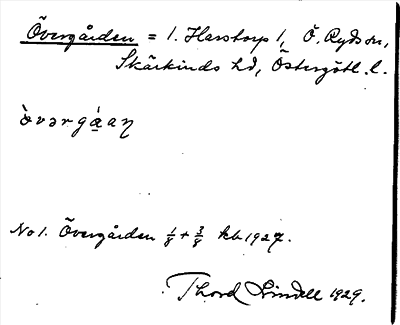 Övergården = 1. Harstorp 1, Ö. Ryds sn,
Skärkinds hd, Östergötl. l.
òvərgá̱aɳ
No 1. Övergården 1/8 + 3/8 kb 1927.
Thord Lindell 1929.